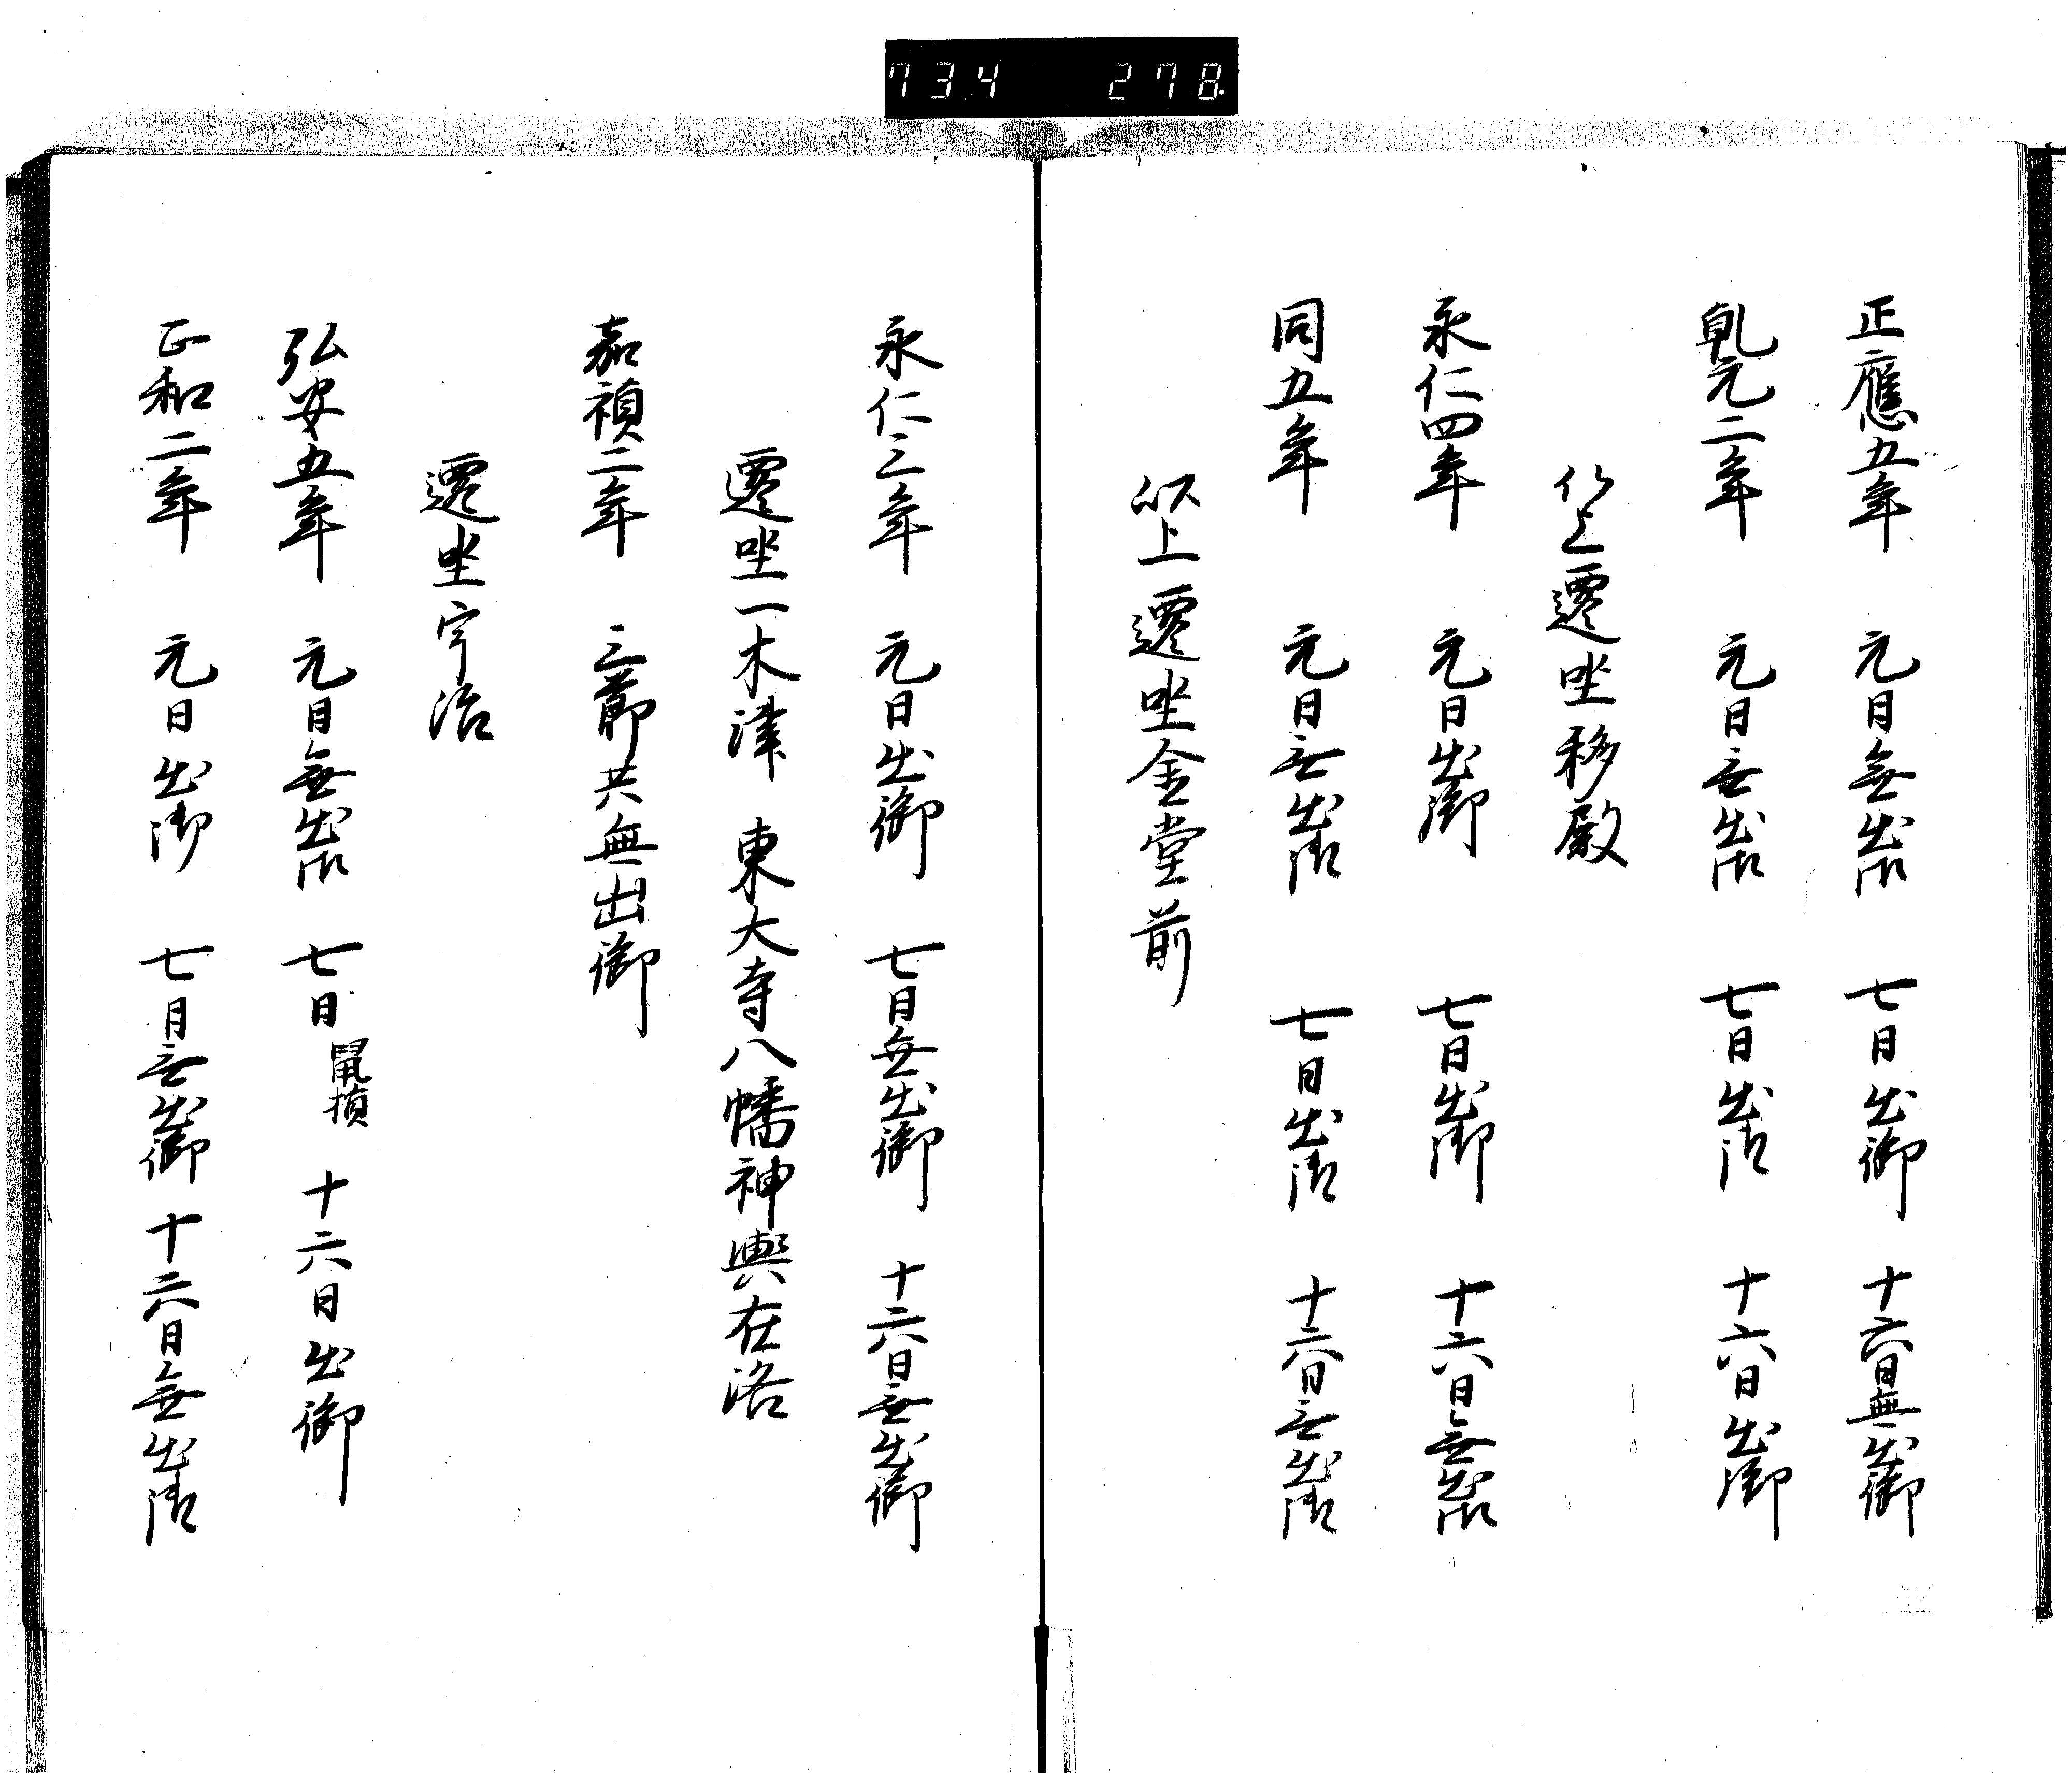 734 278
正應五年 元日無出御 七日出御 十六日無出御
乾元二年 元日無出御 七日出御 十六日出御
以上遷坐移殿
永仁四年 元日出御 七日出御 十六日無出御
同五年 元日無出御 七日出御 十六日無出御
以上遷坐金堂前
永仁三年 元日出御 七日無出御 十六日無出御
遷坐一木津 東大寺八幡神輿在洛
嘉禎二年 三節共無出御
遷坐宇治
弘安五年 元日無出御 七日鼠損 十六日出御
正和二年 元日出御 七日無出御 十六日無出御